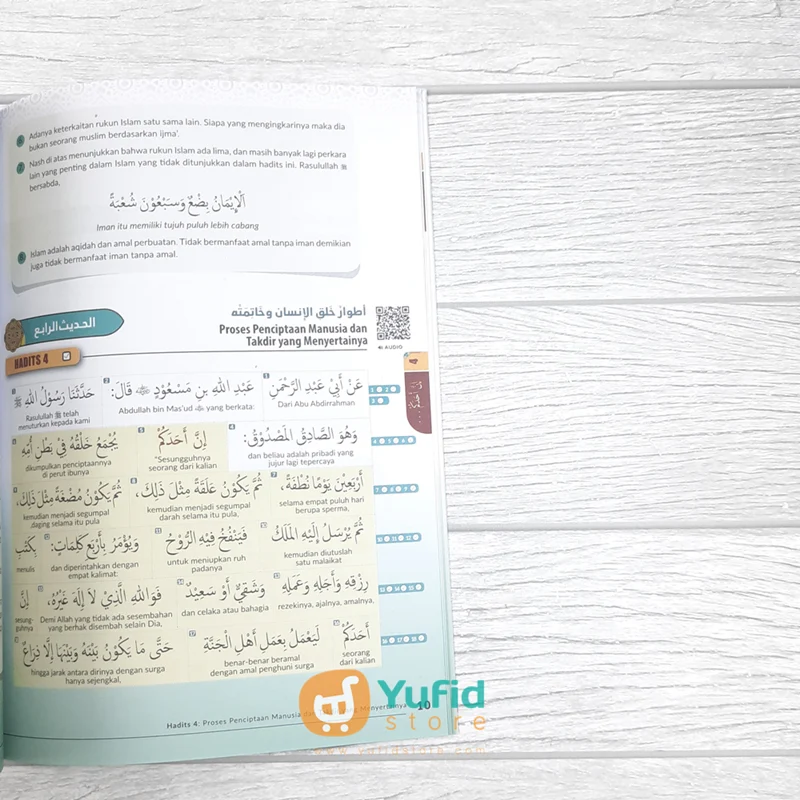 Adanya keterkaitan rukun Islam satu sama lain. Siapa yang mengingkarinya maka dia
bukan seorang muslim berdasarkan ijma'.
Nash di atas menunjukkan bahwa rukun Islam ada lima, dan masih banyak lagi perkara
lain yang penting dalam Islam yang tidak ditunjukkan dalam hadits ini. Rasulullah ﷺ
bersabda,
اَلْإِيْمَانُ بِضْعٌ وَسَبْعُوْنَ شُعْبَةً
Iman itu memiliki tujuh puluh lebih cabang
Islam adalah aqidah dan amal perbuatan. Tidak bermanfaat amal tanpa iman demikian
juga tidak bermanfaat iman tanpa amal.
الحديث الرابع
HADITS 4
أطوار خلق الإنسان وخاتمته
Proses Penciptaan Manusia dan
Takdir yang Menyertainya
AUDIO
4
عَنْ أَبِيْ عَبْدِ الرَّحْمَنِ عَبْدِ اللهِ بنِ مَسْعُوْدٍ قَالَ: حَدَّثَنَا رَسُوْلُ اللهِ ﷺ
Dari Abu Abdirrahman
Abdullah bin Mas'ud yang berkata:
Rasulullah ﷺ telah
menuturkan kepada kami
وَهُوَ الصَّادِقُ الْمَصْدُوْقُ: إِنَّ أَحَدَكُمْ يُجْمَعُ خَلْقُهُ فِيْ بَطْنِ أُمِّهِ
dan beliau adalah pribadi yang
jujur lagi tepercaya
"Sesungguhnya
seorang dari kalian
dikumpulkan penciptaannya
di perut ibunya
أَرْبَعِيْنَ يَوْمًا نُطْفَةً، ثُمَّ يَكُوْنُ عَلَقَةً مِثْلَ ذَلِكَ، ثُمَّ يَكُوْنُ مُضْغَةً مِثْلَ ذَلِكَ،
selama empat puluh hari
berupa sperma,
kemudian menjadi segumpal
darah selama itu pula,
kemudian menjadi segumpal
daging selama itu pula,
ثُمَّ يُرْسَلُ إِلَيْهِ الْمَلَكُ فَيَنْفُخُ فِيْهِ الرُّوْحَ وَيُؤْمَرُ بِأَرْبَعِ كَلِمَاتٍ: بِكَتْبِ
kemudian diutuslah
satu malaikat
untuk meniupkan ruh
padanya
dan diperintahkan dengan
empat kalimat:
menulis
رِزْقِهِ وَأَجَلِهِ وَعَمَلِهِ وَشَقِيٌّ أَوْ سَعِيْدٌ فَوَاللهِ الَّذِيْ لَا إِلَهَ غَيْرُهُ، إِنَّ
rezekinya, ajalnya, amalnya,
dan celaka atau bahagia
Demi Allah yang tidak ada sesembahan
yang berhak disembah selain Dia,
sesung-
guhnya
أَحَدَكُمْ لَيَعْمَلُ بِعَمَلِ أَهْلِ الْجَنَّةِ حَتَّى مَا يَكُوْنُ بَيْنَهُ وَبَيْنَهَا إِلَّا ذِرَاعٌ
seorang
dari kalian
benar-benar beramal
dengan amal penghuni surga
hingga jarak antara dirinya dengan surga
hanya sejengkal,
Hadits 4: Proses Penciptaan Manusia dan Takdir yang Menyertainya
10
Yufid
store
www.yufidstore.com